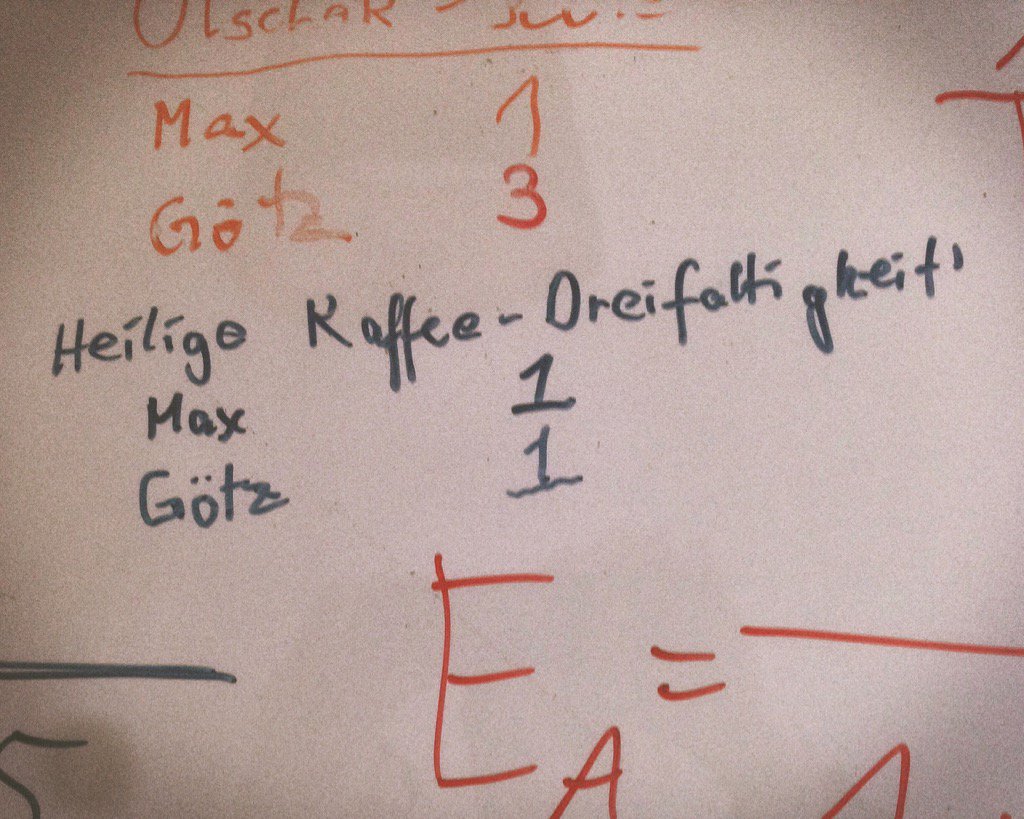 Max 1
Götz 3
Heilige Kaffee-Dreifaltigkeit'
Max 1
Götz 1
E_A =
5